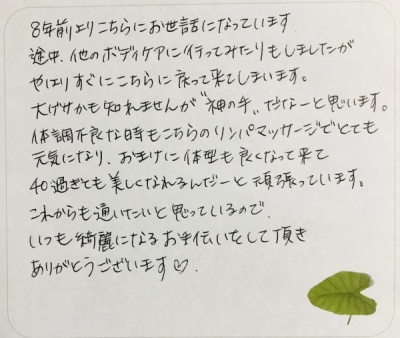 8年前よりこちらにお世話になっています
途中、他のボディケアに行ってみたりもしましたが
やはりすぐにこちらに戻って来てしまいます。
大げさかも知れませんが〝神の手〟だなーと思います。
体調不良な時もこちらのリンパマッサージでとても
元気になり、おまけに体型も良くなって来て
40過ぎても美しくなれるんだーと頑張っています。
これからも通いたいと思っているので、
いつも綺麗になるお手伝いをして頂き
ありがとうございます♡.